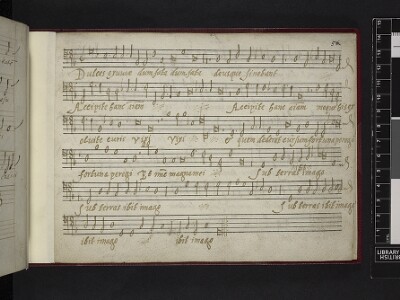 52
Dulces exuviæ dum fata dum fata deusque sinebant
Accipite hanc anim Accipite hanc anim meque his ex
olvite curis Vixi Vixi et quem dederat cursum fortuna peregi
fortuna peregi Et nunc magna mei Sub terras imago
Sub terras ibit imago Sub terras ibit imago
ibit imago ibit imago
LIBRARY